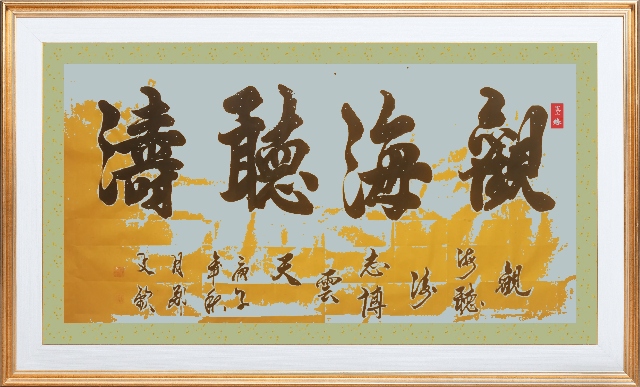 觀海聽濤
觀
海聽
濤
志博
雲
天
庚子
年秋
月
文欽